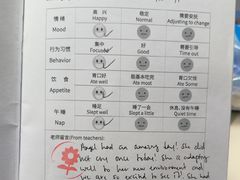 情 绪 高 兴 稳定 需要安抚
Mood Happy Normal Adjusting to change
行为习惯 集中 好 需要引导
Behavior Focused Good Time out
饮 食 胃口好 基本吃完 胃口欠佳
Appetite Ate well Ate most Ate Some
午 睡 睡足 睡了一会 休息, 没有午睡
Nap Slept well Slept a little Quiet time
老师留言(From teachers):
had an amazing day! She did
not cry one today! She is adapting
well to her new environment and
we are so excited to see it! She had